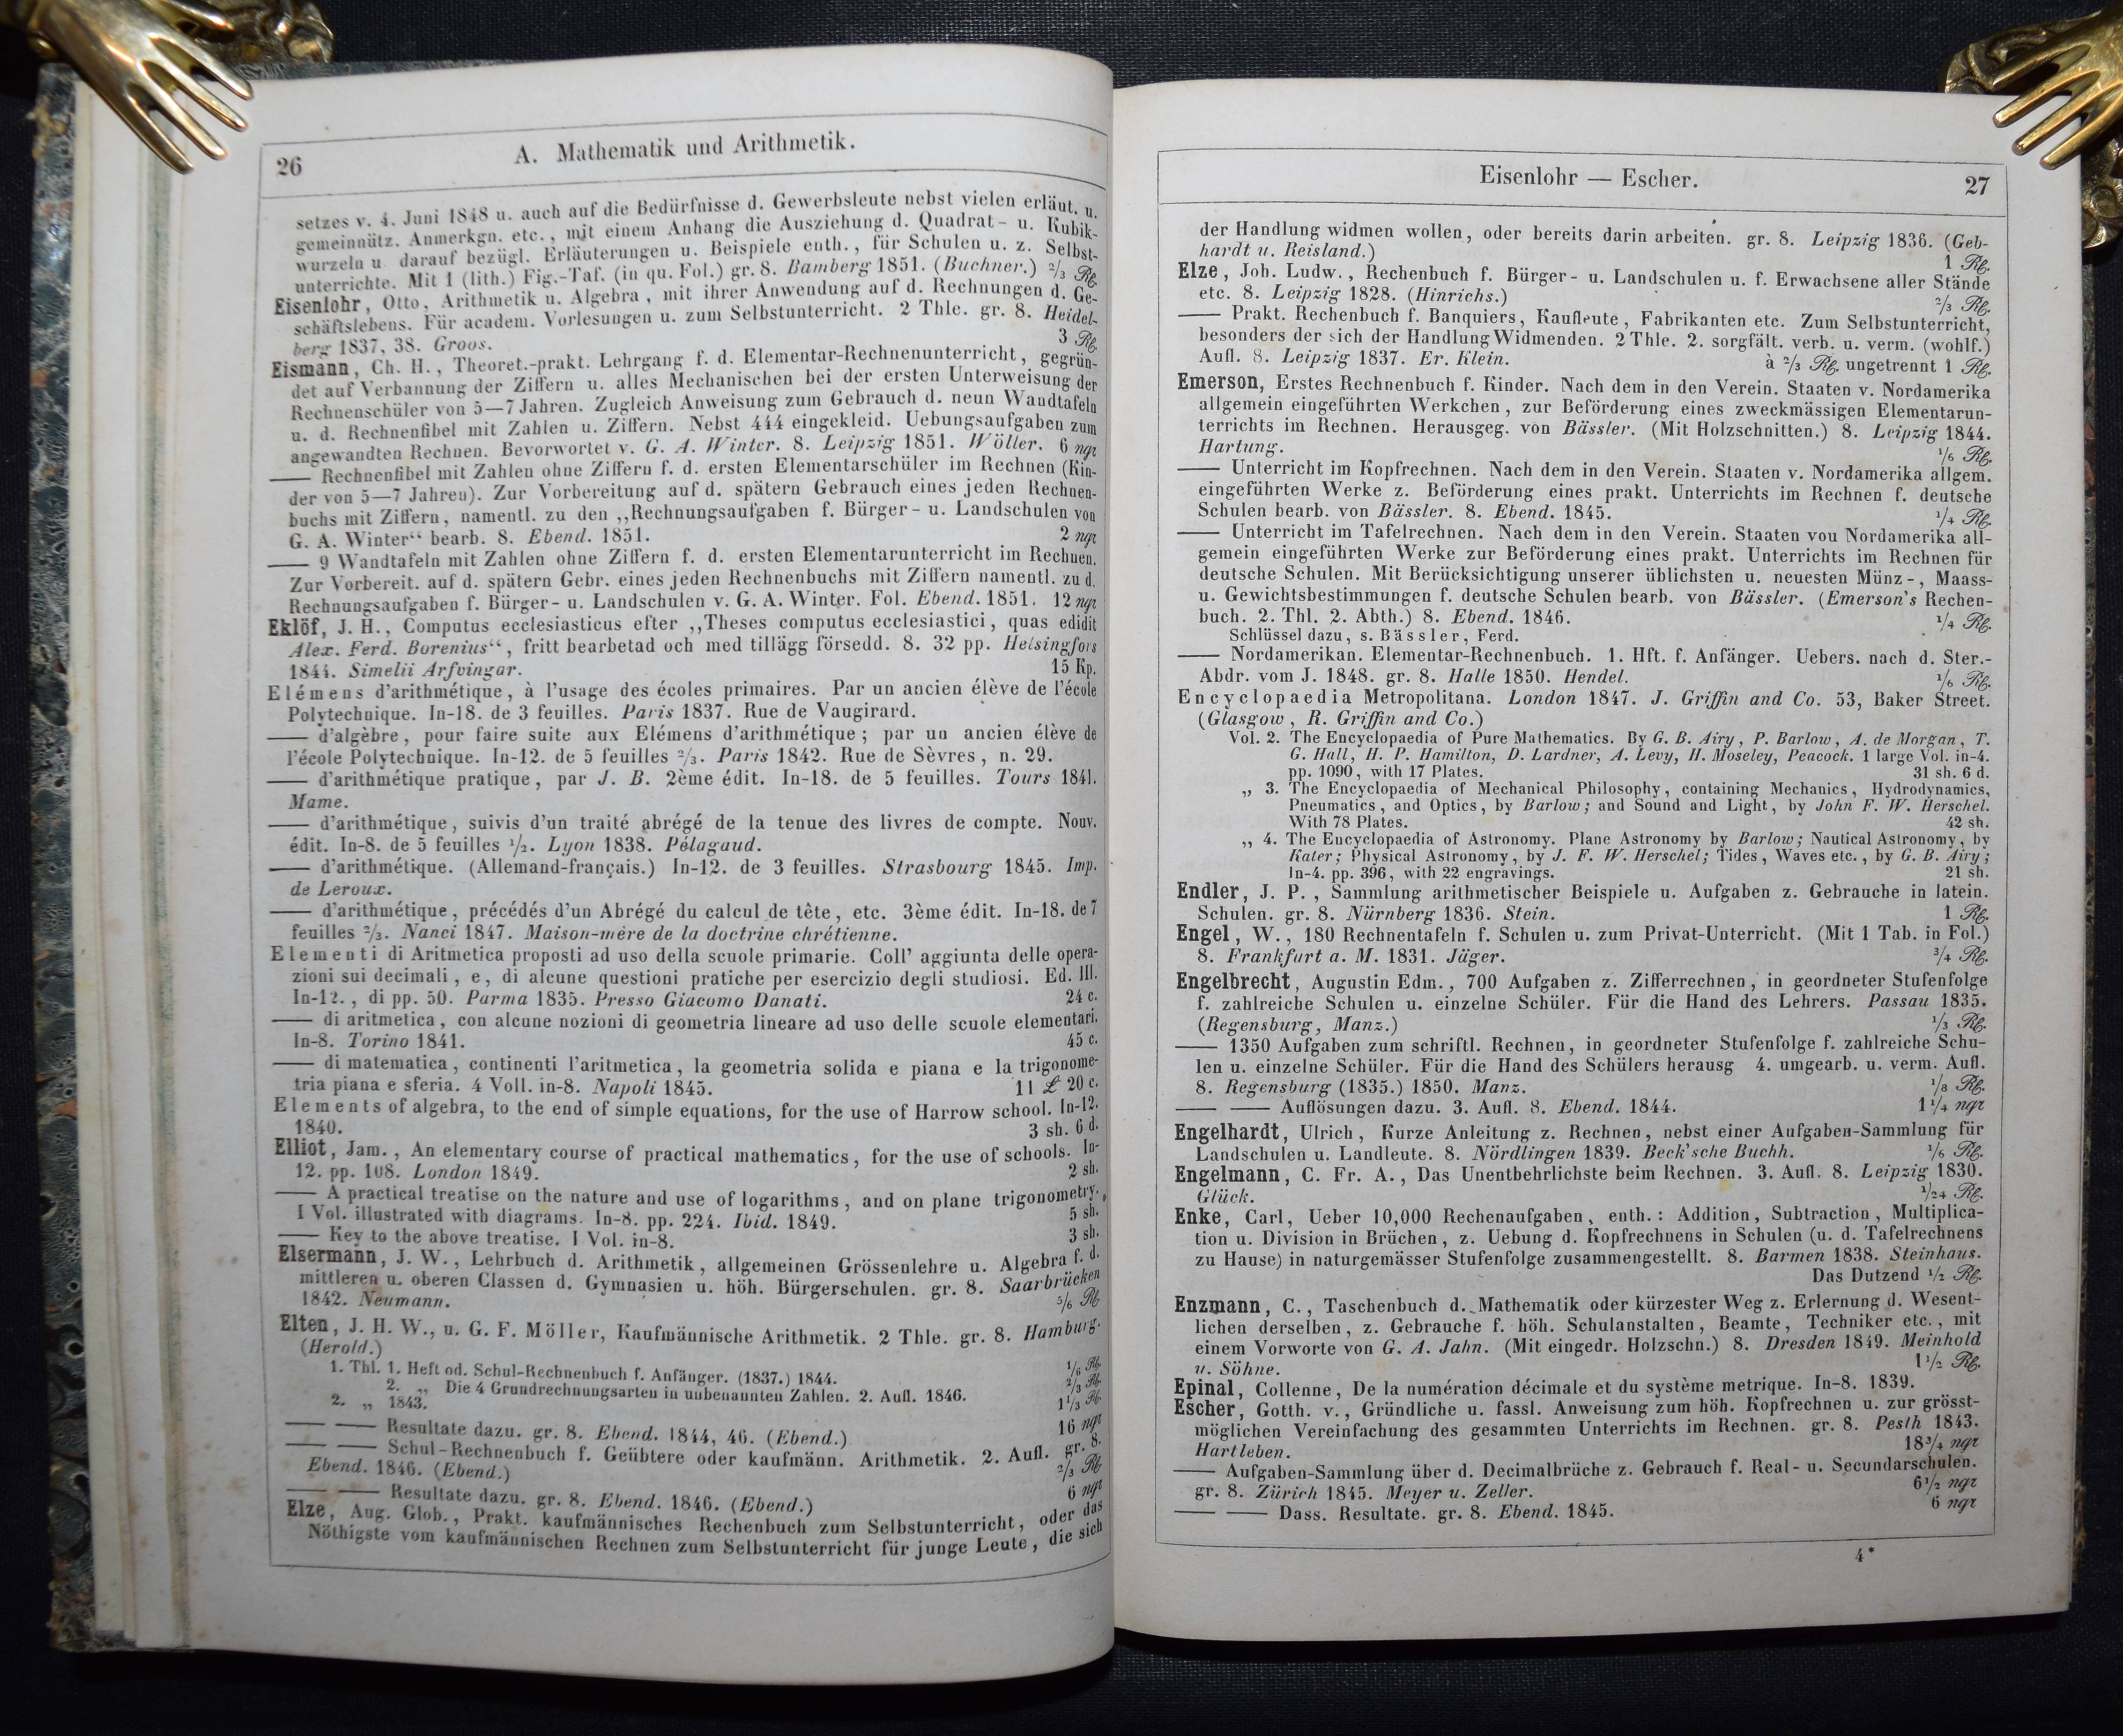 26
A. Mathematik und Arithmetik.
setzes v. 4. Juni 1848 u. auch auf die Bedürfnisse d. Gewerbsleute nebst vielen erläut. u.
gemeinnütz. Anmerkgn. etc., mit einem Anhang die Ausziehung d. Quadrat- u. Kubik-
wurzeln u. darauf bezügl. Erläuterungen u. Beispiele enth., für Schulen u. z. Selbst-
unterrichte. Mit 1 (lith.) Fig.-Taf. (in qu. Fol.) gr. 8. Bamberg 1851. (Buchner.) 2/3 Rℓ.
Eisenlohr, Otto, Arithmetik u. Algebra, mit ihrer Anwendung auf d. Rechnungen d. Ge-
schäftslebens. Für academ. Vorlesungen u. zum Selbstunterricht. 2 Thle. gr. 8. Heidel-
berg 1837, 38. Groos. 3 Rℓ.
Eismann, Ch. H., Theoret.-prakt. Lehrgang f. d. Elementar-Rechnenunterricht, gegrün-
det auf Verbannung der Ziffern u. alles Mechanischen bei der ersten Unterweisung der
Rechnenschüler von 5—7 Jahren. Zugleich Anweisung zum Gebrauch d. neun Wandtafeln
u. d. Rechnenfibel mit Zahlen u. Ziffern. Nebst 444 eingekleid. Uebungsaufgaben zum
angewandten Rechnen. Bevorwortet v. G. A. Winter. 8. Leipzig 1851. Wöller. 6 ngr
—— Rechnenfibel mit Zahlen ohne Ziffern f. d. ersten Elementarschüler im Rechnen (Kin-
der von 5—7 Jahren). Zur Vorbereitung auf d. spätern Gebrauch eines jeden Rechnen-
buchs mit Ziffern, namentl. zu den „Rechnungsaufgaben f. Bürger- u. Landschulen von
G. A. Winter“ bearb. 8. Ebend. 1851. 2 ngr
—— 9 Wandtafeln mit Zahlen ohne Ziffern f. d. ersten Elementarunterricht im Rechnen.
Zur Vorbereit. auf d. spätern Gebr. eines jeden Rechnenbuchs mit Ziffern namentl. zu d.
Rechnungsaufgaben f. Bürger- u. Landschulen v. G. A. Winter. Fol. Ebend. 1851. 12 ngr
Eklöf, J. H., Computus ecclesiasticus efter „Theses computus ecclesiastici, quas edidit
Alex. Ferd. Borenius“, fritt bearbetad och med tillägg försedd. 8. 32 pp. Helsingfors
1844. Simelii Arfvingar. 15 Kp.
Elémens d'arithmétique, à l'usage des écoles primaires. Par un ancien élève de l'école
Polytechnique. In-18. de 3 feuilles. Paris 1837. Rue de Vaugirard.
—— d'algèbre, pour faire suite aux Elémens d'arithmétique; par un ancien élève de
l'école Polytechnique. In-12. de 5 feuilles 2/3. Paris 1842. Rue de Sèvres, n. 29.
—— d'arithmétique pratique, par J. B. 2ème édit. In-18. de 5 feuilles. Tours 1841.
Mame.
—— d'arithmétique, suivis d'un traité abrégé de la tenue des livres de compte. Nouv.
édit. In-8. de 5 feuilles 1/2. Lyon 1838. Pélagaud.
—— d'arithmétique. (Allemand-français.) In-12. de 3 feuilles. Strasbourg 1845. Imp.
de Leroux.
—— d'arithmétique, précédés d'un Abrégé du calcul de tête, etc. 3ème édit. In-18. de 7
feuilles 2/3. Nanci 1847. Maison-mère de la doctrine chrétienne.
Elementi di Aritmetica proposti ad uso della scuole primarie. Coll' aggiunta delle opera-
zioni sui decimali, e, di alcune questioni pratiche per esercizio degli studiosi. Ed. III.
In-12., di pp. 50. Parma 1835. Presso Giacomo Donati. 24 c.
—— di aritmetica, con alcune nozioni di geometria lineare ad uso delle scuole elementari.
In-8. Torino 1841. 45 c.
—— di matematica, continenti l'aritmetica, la geometria solida e piana e la trigonome-
tria piana e sferia. 4 Voll. in-8. Napoli 1845. 11 ₤ 20 c.
Elements of algebra, to the end of simple equations, for the use of Harrow school. In-12.
1840. 3 sh. 6 d.
Elliot, Jam., An elementary course of practical mathematics, for the use of schools. In-
12. pp. 108. London 1849. 2 sh.
—— A practical treatise on the nature and use of logarithms, and on plane trigonometry.
I Vol. illustrated with diagrams. In-8. pp. 224. Ibid. 1849. 5 sh.
—— Key to the above treatise. I Vol. in-8. 3 sh.
Elsermann, J. W., Lehrbuch d. Arithmetik, allgemeinen Grössenlehre u. Algebra f. d.
mittleren u. oberen Classen d. Gymnasien u. höh. Bürgerschulen. gr. 8. Saarbrücken
1842. Neumann. 5/6 Rℓ
Elten, J. H. W., u. G. F. Möller, Kaufmännische Arithmetik. 2 Thle. gr. 8. Hamburg.
(Herold.)
1. Thl. 1. Heft od. Schul-Rechnenbuch f. Anfänger. (1837.) 1844. 1/6 Rℓ.
2. „ Die 4 Grundrechnungsarten in unbenannten Zahlen. 2. Aufl. 1846. 2/3 Rℓ.
2. „ 1843. 1 1/3 Rℓ.
—— —— Resultate dazu. gr. 8. Ebend. 1844, 46. (Ebend.) 16 ngr
—— —— Schul-Rechnenbuch f. Geübtere oder kaufmänn. Arithmetik. 2. Aufl. gr. 8.
Ebend. 1846. (Ebend.) 2/3 Rℓ
—— —— Resultate dazu. gr. 8. Ebend. 1846. (Ebend.) 6 ngr
Elze, Aug. Glob., Prakt. kaufmännisches Rechenbuch zum Selbstunterricht, oder das
Nöthigste vom kaufmännischen Rechnen zum Selbstunterricht für junge Leute, die sich
Eisenlohr — Escher.
27
der Handlung widmen wollen, oder bereits darin arbeiten. gr. 8. Leipzig 1836. (Geb-
hardt u. Reisland.) 1 Rℓ.
Elze, Joh. Ludw., Rechenbuch f. Bürger- u. Landschulen u. f. Erwachsene aller Stände
etc. 8. Leipzig 1828. (Hinrichs.) 2/3 Rℓ.
—— Prakt. Rechenbuch f. Banquiers, Kaufleute, Fabrikanten etc. Zum Selbstunterricht,
besonders der sich der Handlung Widmenden. 2 Thle. 2. sorgfält. verb. u. verm. (wohlf.)
Aufl. 8. Leipzig 1837. Er. Klein. à 2/3 Rℓ. ungetrennt 1 Rℓ.
Emerson, Erstes Rechnenbuch f. Kinder. Nach dem in den Verein. Staaten v. Nordamerika
allgemein eingeführten Werkchen, zur Beförderung eines zweckmässigen Elementarun-
terrichts im Rechnen. Herausgeg. von Bässler. (Mit Holzschnitten.) 8. Leipzig 1844.
Hartung. 1/6 Rℓ.
—— Unterricht im Kopfrechnen. Nach dem in den Verein. Staaten v. Nordamerika allgem.
eingeführten Werke z. Beförderung eines prakt. Unterrichts im Rechnen f. deutsche
Schulen bearb. von Bässler. 8. Ebend. 1845. 1/4 Rℓ.
—— Unterricht im Tafelrechnen. Nach dem in den Verein. Staaten vou Nordamerika all-
gemein eingeführten Werke zur Beförderung eines prakt. Unterrichts im Rechnen für
deutsche Schulen. Mit Berücksichtigung unserer üblichsten u. neuesten Münz-, Maass-
u. Gewichtsbestimmungen f. deutsche Schulen bearb. von Bässler. (Emerson's Rechen-
buch. 2. Thl. 2. Abth.) 8. Ebend. 1846. 1/4 Rℓ.
Schlüssel dazu, s. Bässler, Ferd.
—— Nordamerikan. Elementar-Rechnenbuch. 1. Hft. f. Anfänger. Uebers. nach d. Ster.-
Abdr. vom J. 1848. gr. 8. Halle 1850. Hendel. 1/6 Rℓ.
Encyclopaedia Metropolitana. London 1847. J. Griffin and Co. 53, Baker Street.
(Glasgow, R. Griffin and Co.)
Vol. 2. The Encyclopaedia of Pure Mathematics. By G. B. Airy, P. Barlow, A. de Morgan, T.
G. Hall, H. P. Hamilton, D. Lardner, A. Levy, H. Moseley, Peacock. 1 large Vol. in-4.
pp. 1090, with 17 Plates. 31 sh. 6 d.
„ 3. The Encyclopaedia of Mechanical Philosophy, containing Mechanics, Hydrodynamics,
Pneumatics, and Optics, by Barlow; and Sound and Light, by John F. W. Herschel.
With 78 Plates. 42 sh.
„ 4. The Encyclopaedia of Astronomy. Plane Astronomy by Barlow; Nautical Astronomy, by
Kater; Physical Astronomy, by J. F. W. Herschel; Tides, Waves etc., by G. B. Airy;
In-4. pp. 396, with 22 engravings. 21 sh.
Endler, J. P., Sammlung arithmetischer Beispiele u. Aufgaben z. Gebrauche in latein.
Schulen. gr. 8. Nürnberg 1836. Stein. 1 Rℓ.
Engel, W., 180 Rechnentafeln f. Schulen u. zum Privat-Unterricht. (Mit 1 Tab. in Fol.)
8. Frankfurt a. M. 1831. Jäger. 3/4 Rℓ.
Engelbrecht, Augustin Edm., 700 Aufgaben z. Zifferrechnen, in geordneter Stufenfolge
f. zahlreiche Schulen u. einzelne Schüler. Für die Hand des Lehrers. Passau 1835.
(Regensburg, Manz.) 1/3 Rℓ.
—— 1350 Aufgaben zum schriftl. Rechnen, in geordneter Stufenfolge f. zahlreiche Schu-
len u. einzelne Schüler. Für die Hand des Schülers herausg 4. umgearb. u. verm. Aufl.
8. Regensburg (1835.) 1850. Manz. 1/8 Rℓ.
—— —— Auflösungen dazu. 3. Aufl. 8. Ebend. 1844. 1 1/4 ngr
Engelhardt, Ulrich, Kurze Anleitung z. Rechnen, nebst einer Aufgaben-Sammlung für
Landschulen u. Landleute. 8. Nördlingen 1839. Beck'sche Buchh. 1/6 Rℓ.
Engelmann, C. Fr. A., Das Unentbehrlichste beim Rechnen. 3. Aufl. 8. Leipzig 1830.
Glück. 1/24 Rℓ.
Enke, Carl, Ueber 10,000 Rechenaufgaben, enth.: Addition, Subtraction, Multiplica-
tion u. Division in Brüchen, z. Uebung d. Kopfrechnens in Schulen (u. d. Tafelrechnens
zu Hause) in naturgemässer Stufenfolge zusammengestellt. 8. Barmen 1838. Steinhaus.
Das Dutzend 1/2 Rℓ.
Enzmann, C., Taschenbuch d. Mathematik oder kürzester Weg z. Erlernung d. Wesent-
lichen derselben, z. Gebrauche f. höh. Schulanstalten, Beamte, Techniker etc., mit
einem Vorworte von G. A. Jahn. (Mit eingedr. Holzschn.) 8. Dresden 1849. Meinhold
u. Söhne. 1 1/2 Rℓ.
Epinal, Collenne, De la numération décimale et du système metrique. In-8. 1839.
Escher, Gotth. v., Gründliche u. fassl. Anweisung zum höh. Kopfrechnen u. zur grösst-
möglichen Vereinfachung des gesammten Unterrichts im Rechnen. gr. 8. Pesth 1843.
Hartleben. 18 3/4 ngr
—— Aufgaben-Sammlung über d. Decimalbrüche z. Gebrauch f. Real- u. Secundarschulen.
gr. 8. Zürich 1845. Meyer u. Zeller. 6 1/2 ngr
—— —— Dass. Resultate. gr. 8. Ebend. 1845. 6 ngr
4*